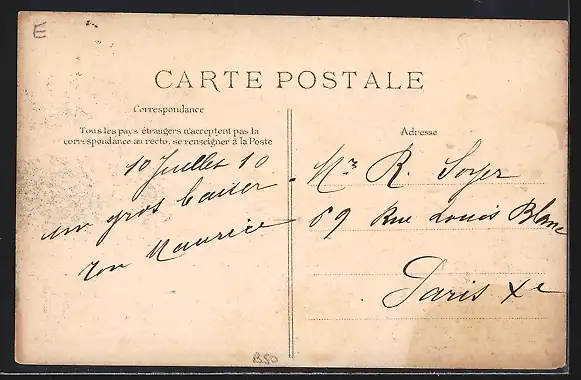 E
CARTE POSTALE
Correspondance
Tous les pays étrangers n'acceptent pas la
correspondance au recto, se renseigner à la Poste
10 Juillet 10
un gros baiser
ton Maurice
Adresse
Mr R. Soyer
89 Rue Louis Blanc
Paris Xe
B50